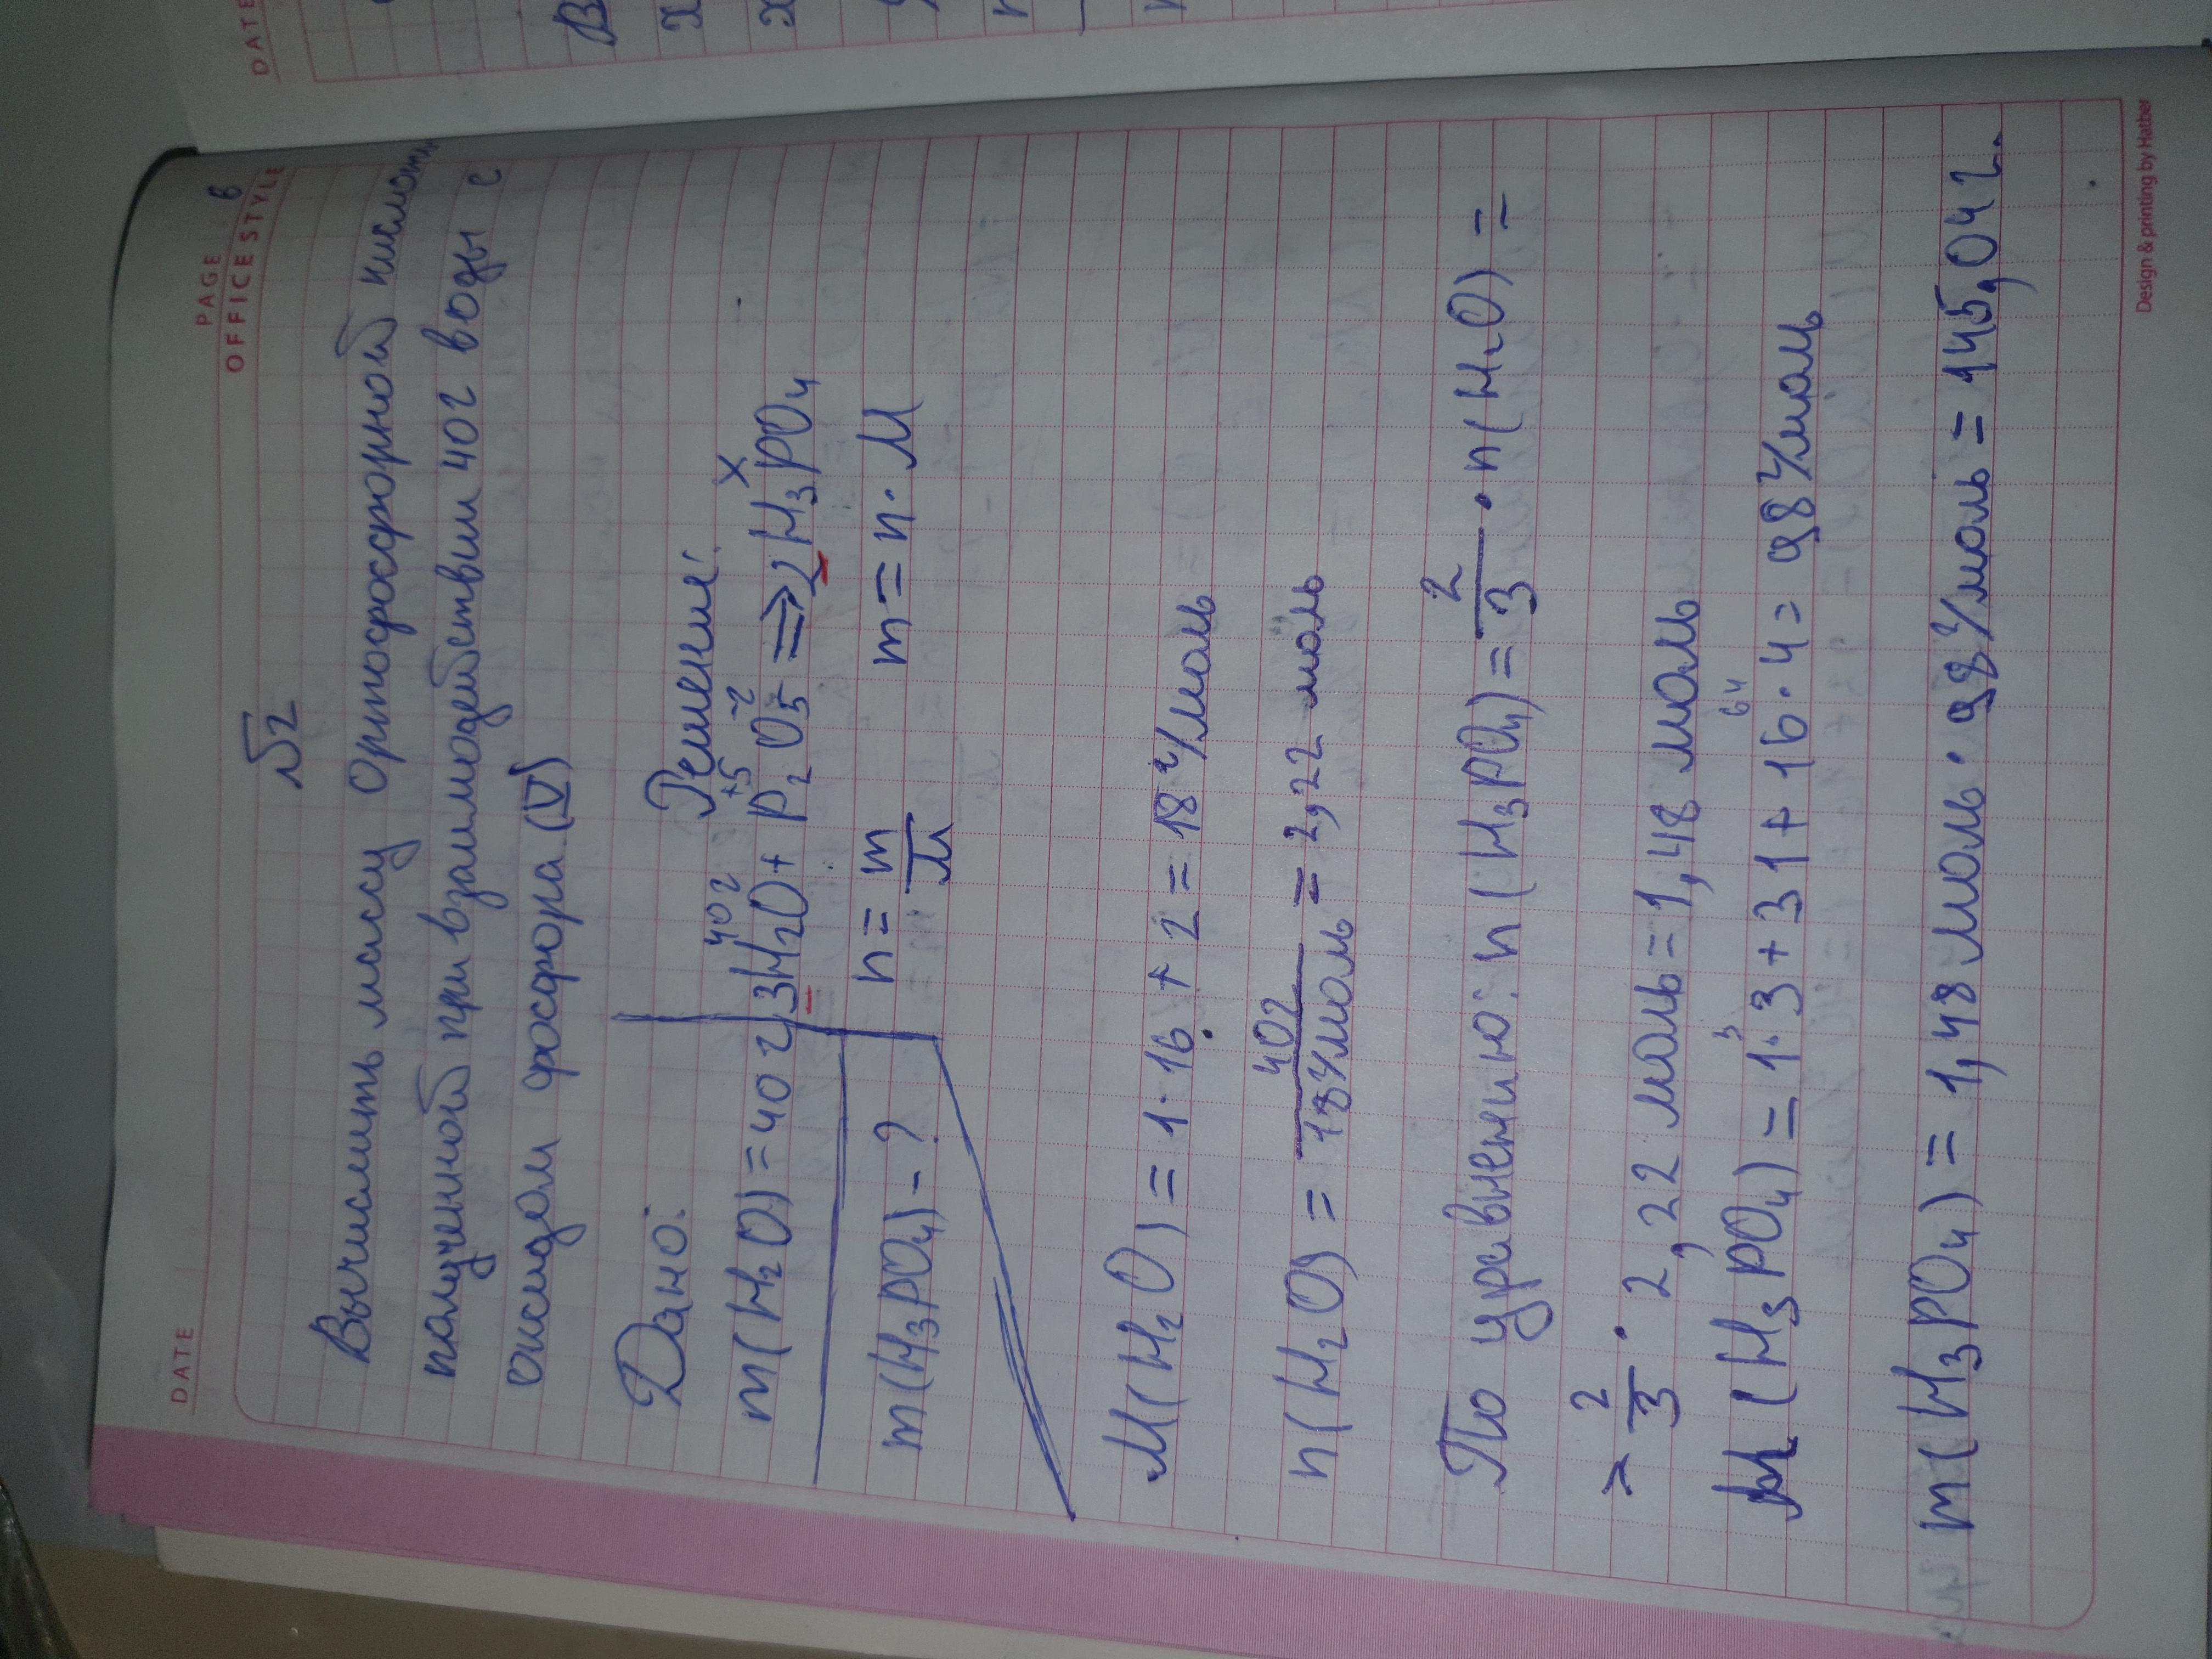 DATE
PAGE в
OFFICE STYLE
№2
Вычислить массу Ортофосфорной кислоты
полученной при взаимодействии 40г воды с
оксидом фосфора (V)
Дано:
Решение:
40г +5 -2 x
m(H₂O)=40г 3H₂O + P₂O₅ => 2H₃PO₄
m(H₃PO₄)-? n=m/M m=n·M
M(H₂O)=1·16+2=18 г/моль
n(H₂O)=40г/18г/моль=2,22 моль
По уравнению: n(H₃PO₄)=2/3·n(H₂O)=
=2/3·2,22 моль=1,48 моль
3 64
M(H₃PO₄)=1·3+31+16·4=98 г/моль
m(H₃PO₄)=1,48 моль·98 г/моль=145,04г.
Design & printing by Hatber
DATE